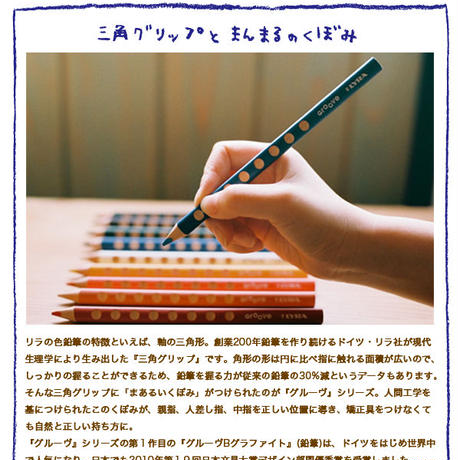 三角グリップと まんまるのくぼみ
GROOVE LYRA
リラの色鉛筆の特徴といえば、軸の三角形。創業200年鉛筆を作り続けるドイツ・リラ社が現代
生理学により生み出した『三角グリップ』です。角形の形は円に比べ指に触れる面積が広いので、
しっかりの握ることができるため、鉛筆を握る力が従来の鉛筆の30%減というデータもあります。
そんな三角グリップに「まあるいくぼみ」がつけられたのが『グルーヴ』シリーズ。人間工学を
基につけられたこのくぼみが、親指、人差し指、中指を正しい位置に導き、矯正具をつけなくて
も自然と正しい持ち方に。
『グルーヴ』シリーズの第1作目の『グルーヴBグラファイト』(鉛筆)は、ドイツをはじめ世界中
で人気になり、日本でも2010年第19回日本文具大賞デザイン部門優秀賞を受賞しました。